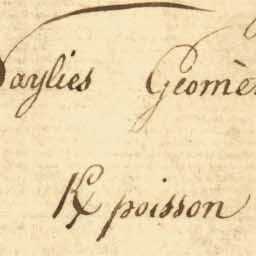 Daylies Geomè
poisson